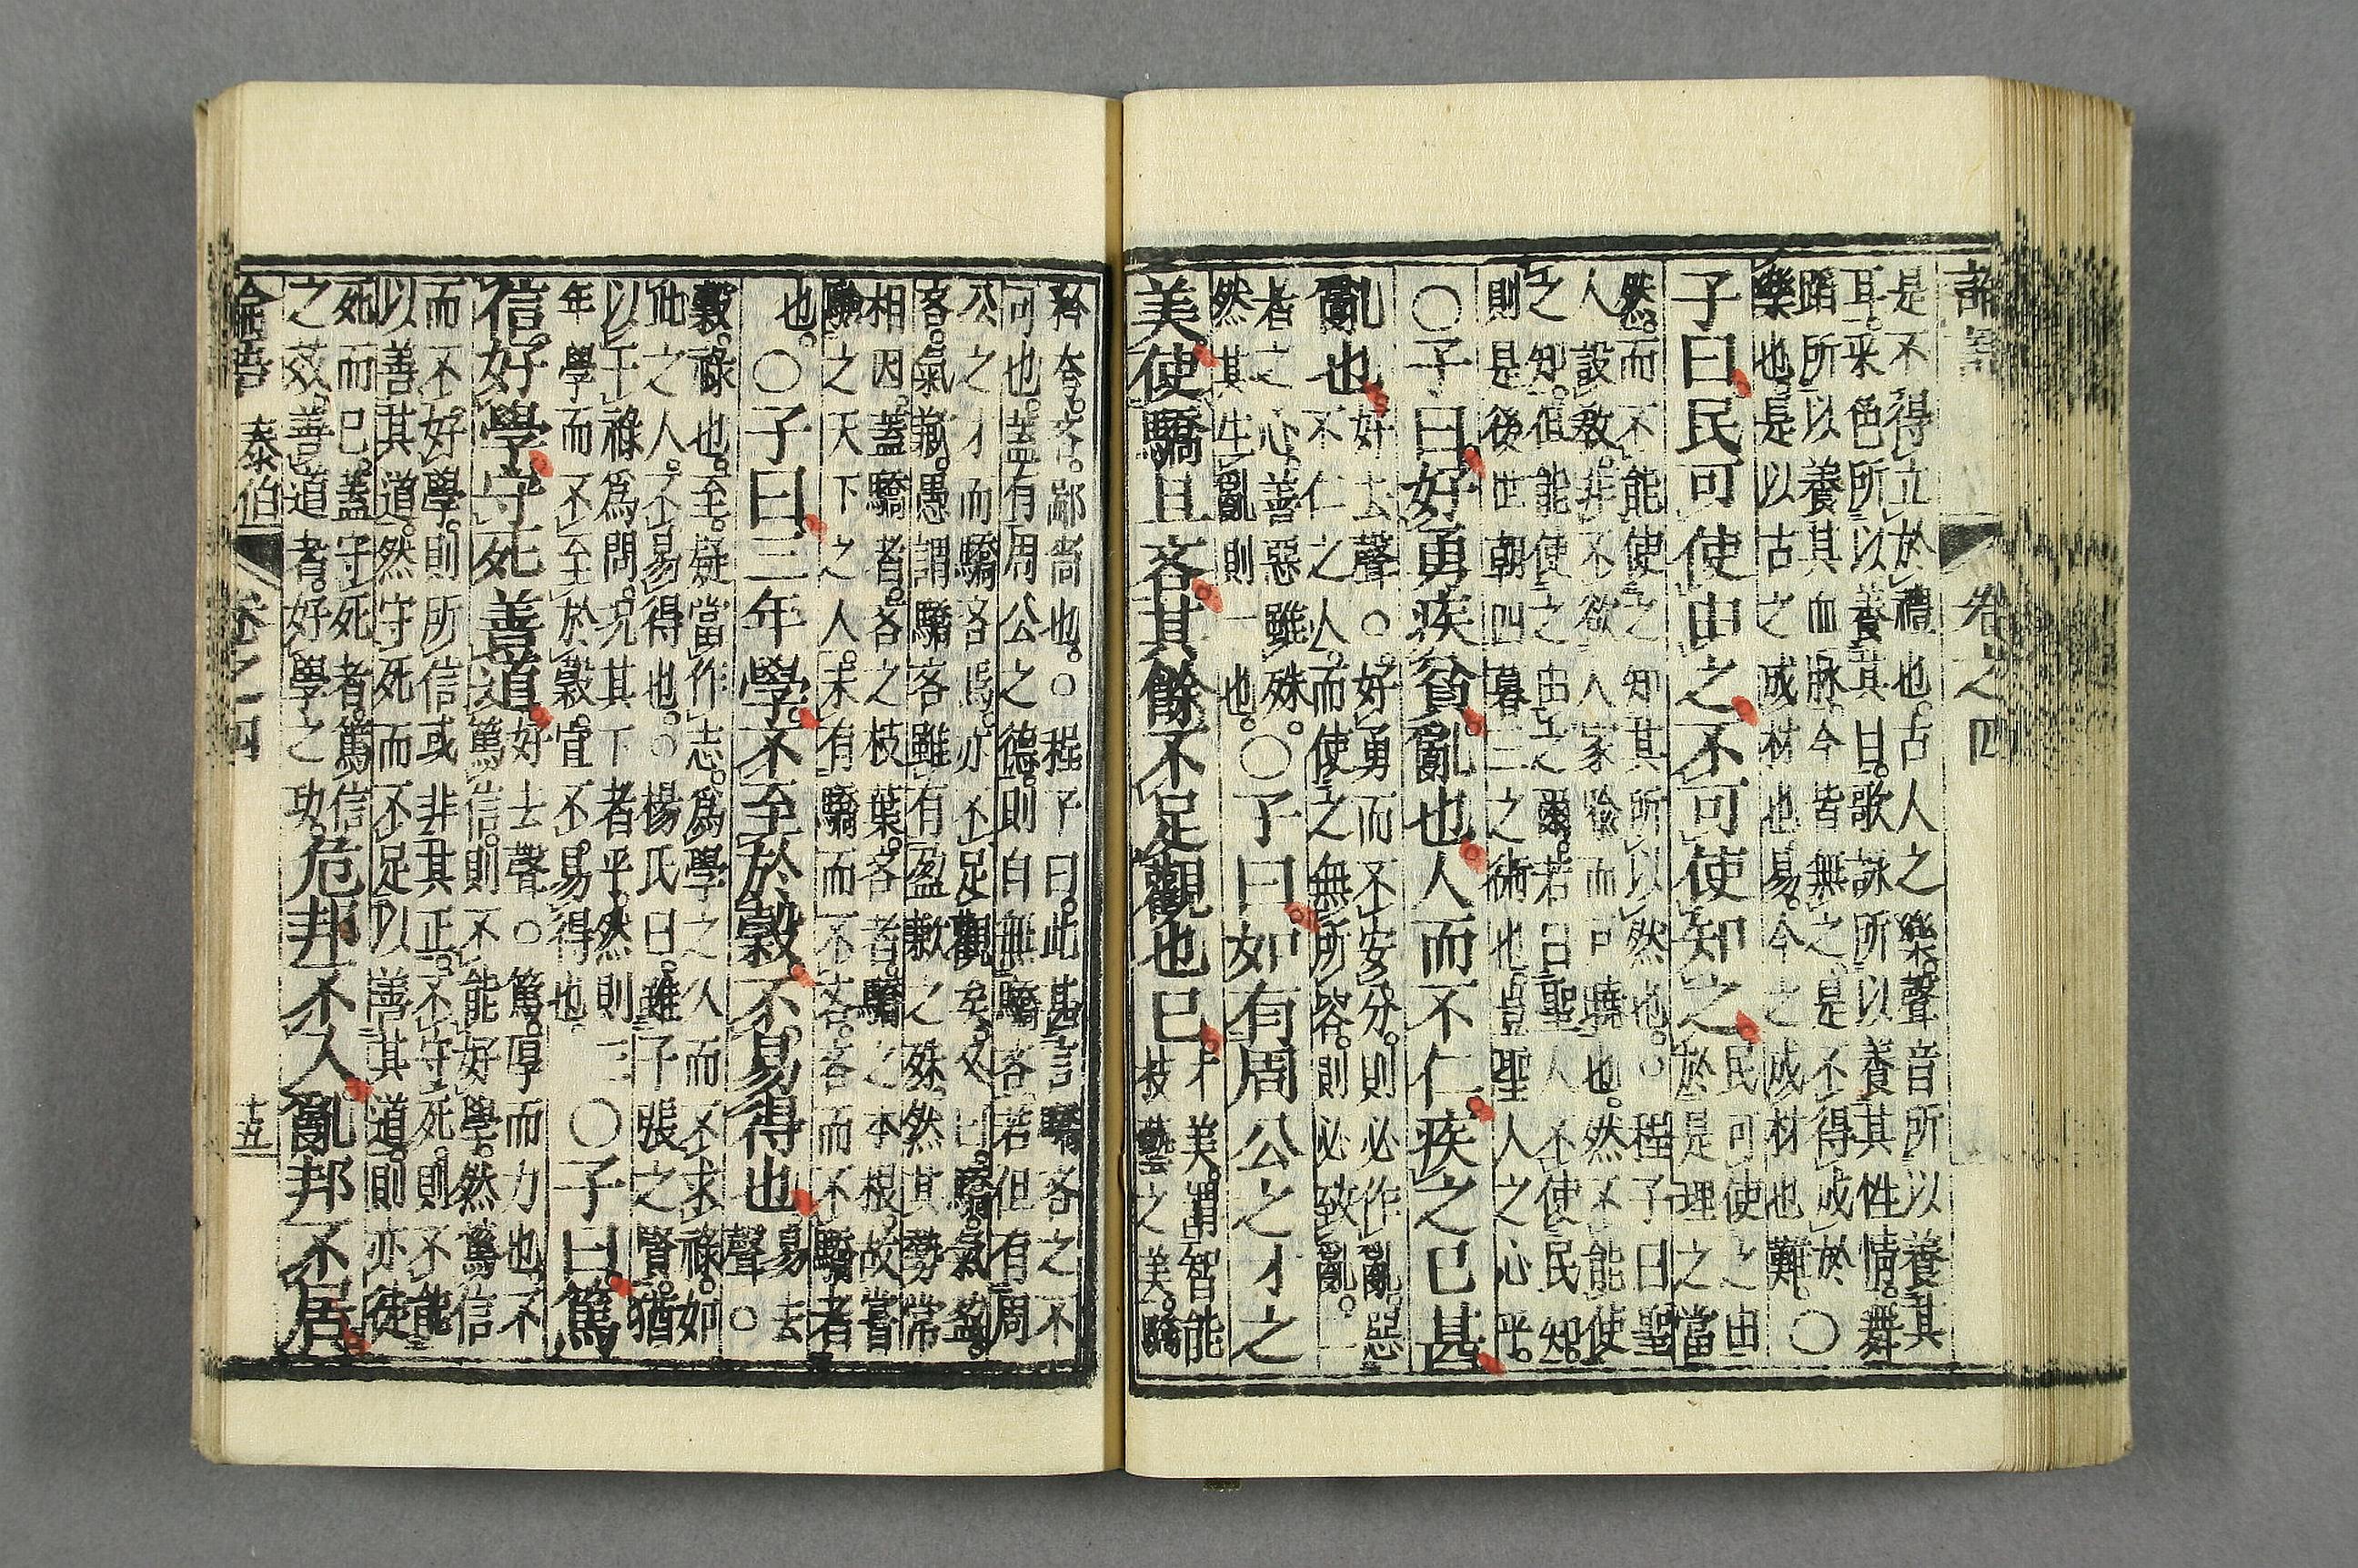 論語 卷之四
是不得立於禮也。古人之樂。聲音所以養其
耳。采色所以養其目。歌詠所以養其性情。舞
蹈所以養其血脉。今皆無之。是不得成於
樂也。是以古之成材也易。今之成材也難。○
子曰民可使由之不可使知之
民可使之由
於是理之當
然。而不能使之知其所以然也。○程子曰聖
人設教。非不欲人家喻而戶曉也。然不能使
之知。但能使之由之爾。若曰聖人不使民知。
則是後世朝四暮三之術也。豈聖人之心乎。
○子曰好勇疾貧亂也人而不仁疾之已甚
亂也
好去聲。○好勇而不安分。則必作亂。惡
不仁之人。而使之無所容。則必致亂。二
者之心善惡雖殊。
然其生亂則一也。
○子曰如有周公之才之
美使驕且吝其餘不足觀也已
才美。謂智能
技藝之美。驕
矜夸。吝。鄙嗇也。○程子曰。此甚言驕吝之不
可也。蓋有周公之德。則自無驕吝。若但有周
公之才而驕吝焉。亦不足觀矣。又曰。驕。氣盈。
吝。氣歉。愚謂驕吝雖有盈歉之殊。然其勢常
相因。蓋驕者。吝之枝葉。吝者。驕之本根。故嘗
驗之天下之人。未有驕而不吝。吝而不驕者
也。○子曰三年學不至於穀不易得也
易去
聲○
穀。祿也。至。疑當作志。爲學之久而不求祿。如
此之人。不易得也。○楊氏曰。雖子張之賢。猶
以干祿爲問。况其下者乎。然則三
年學而不至於穀。宜不易得也。
○子曰篤
信好學守死善道
好去聲。○篤。厚而力也不
篤信。則不能好學。然篤信
而不好學。則所信或非其正。不守死。則不能
以善其道。然守死而不足以善其道。則亦徒
死而已。蓋守死者。篤信
之效。善道者。好學之功。
危邦不入亂邦不居
論語 泰伯 卷之四 十五